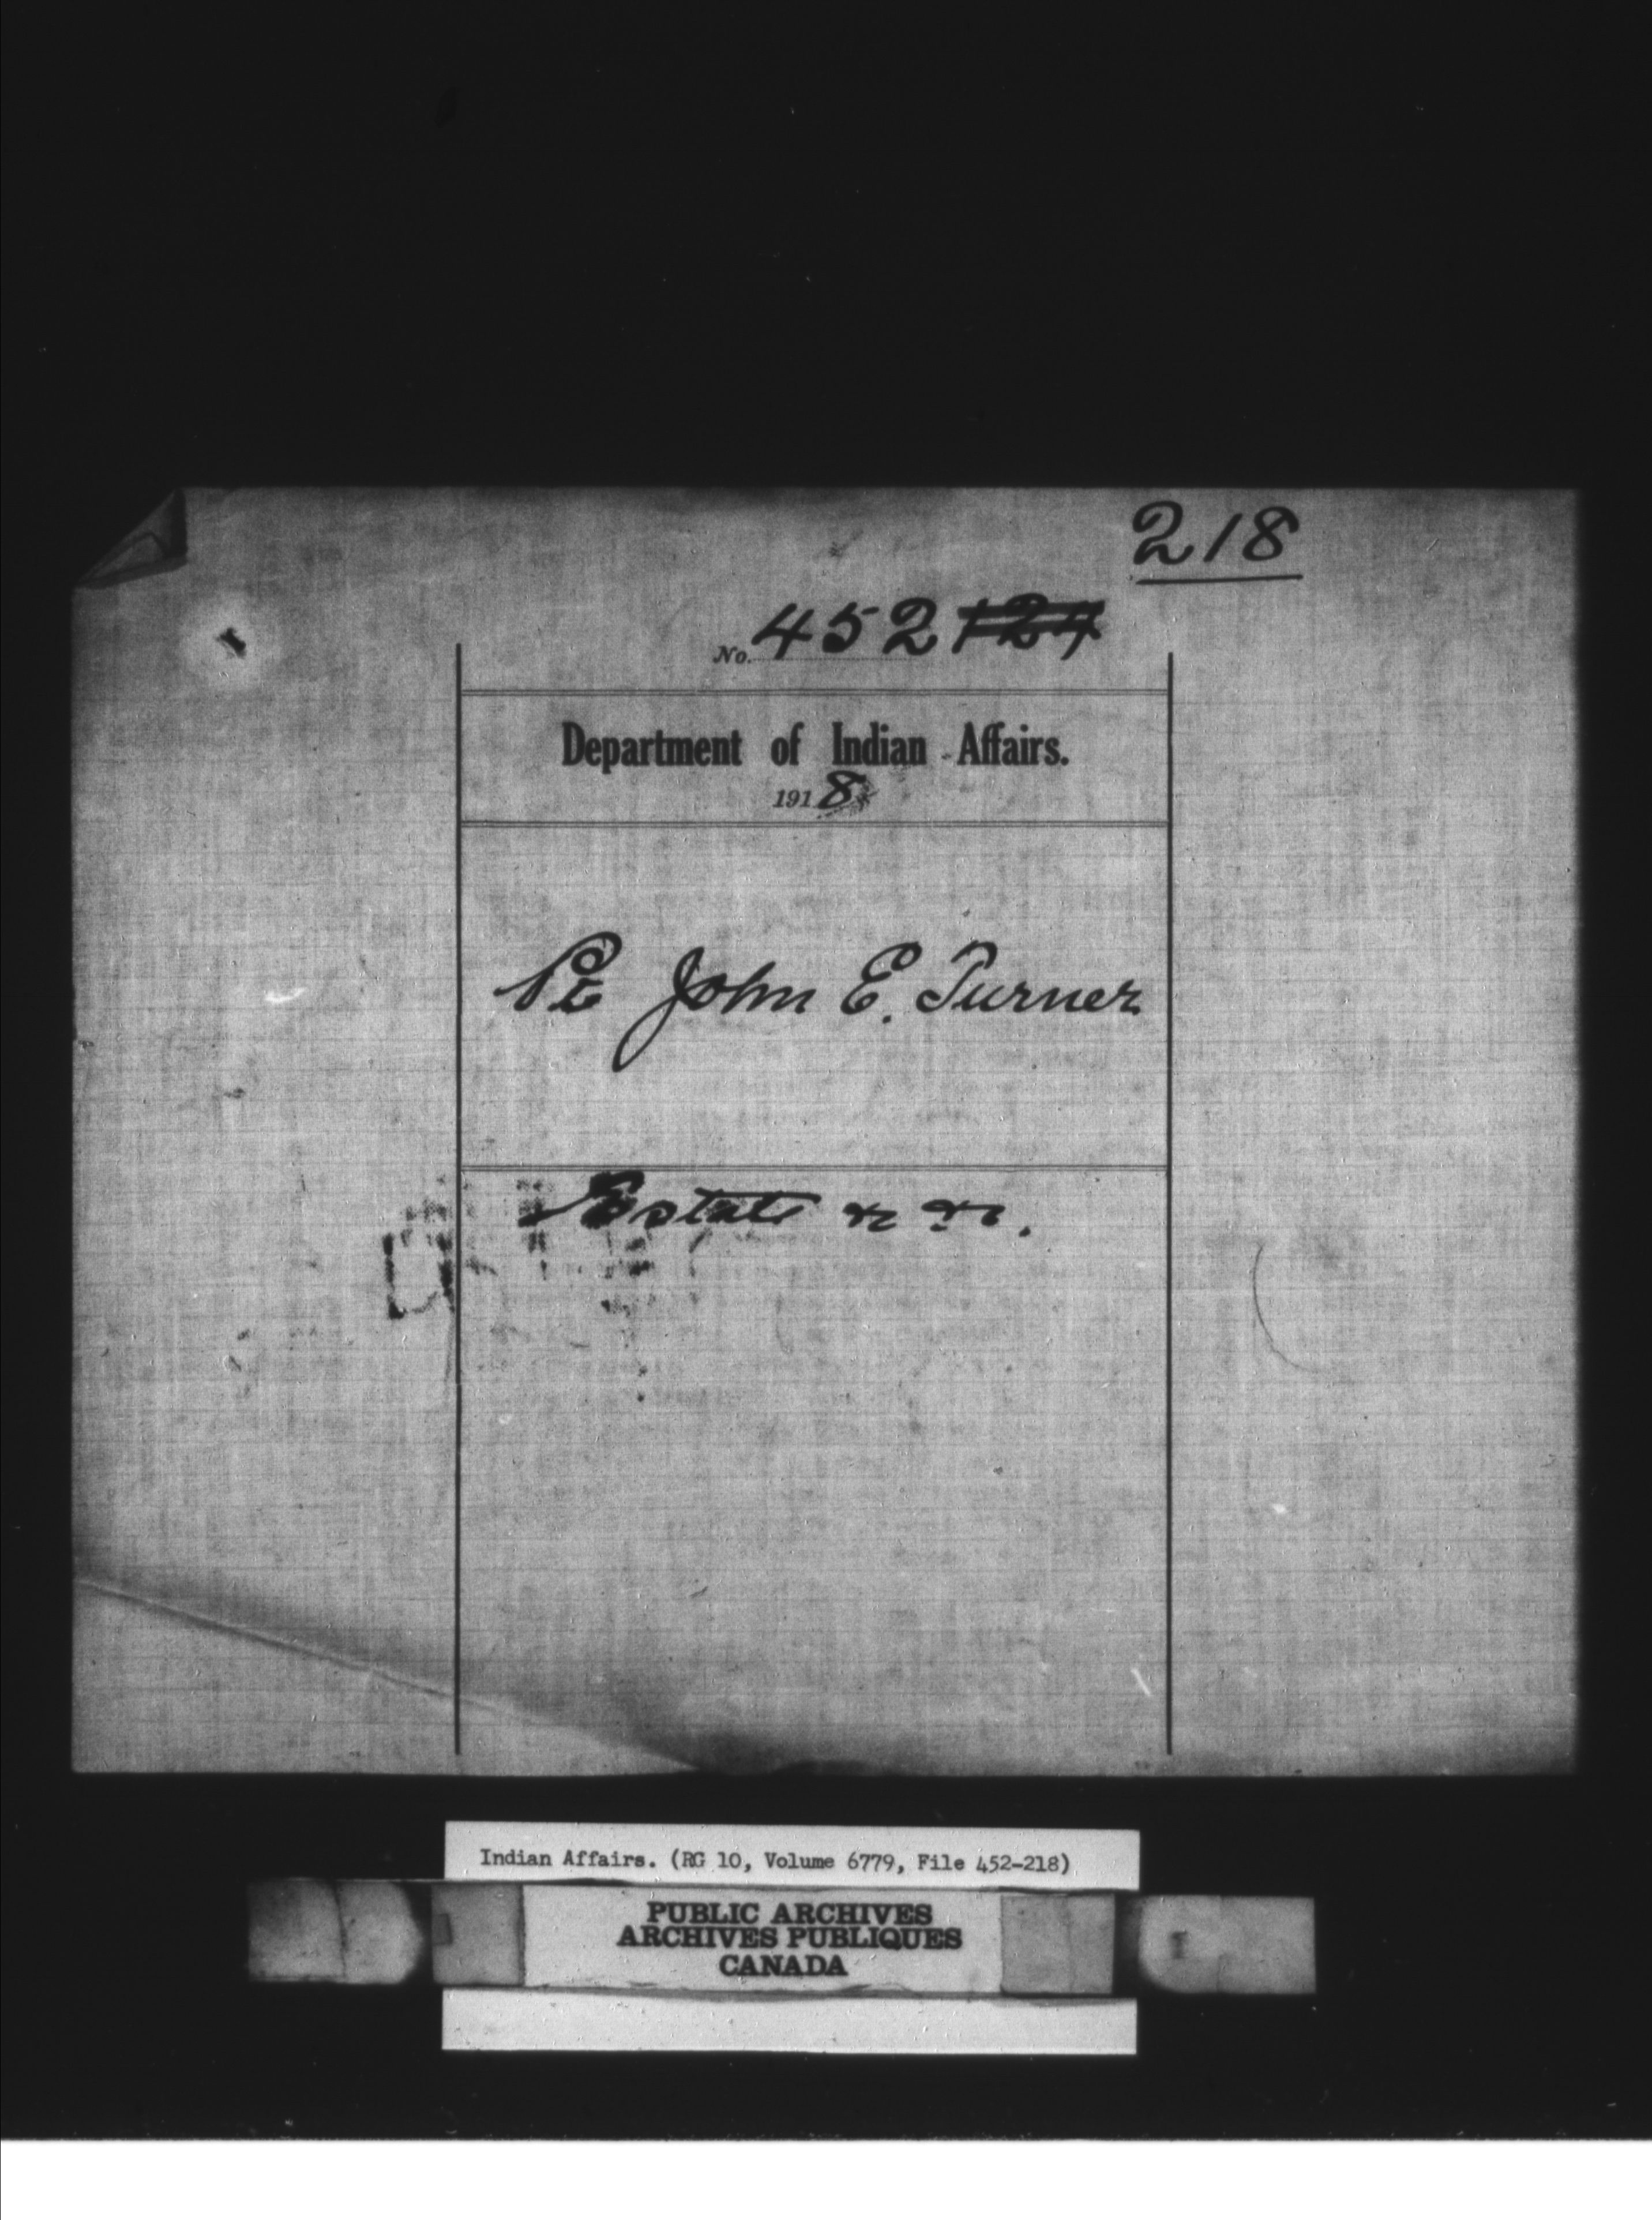 218
No. 452 124
Department of Indian Affairs.
1918
Pt John E. Turner
Estate &c &c.
Indian Affairs. (RG 10, Volume 6779, File 452-218)
PUBLIC ARCHIVES
ARCHIVES PUBLIQUES
CANADA